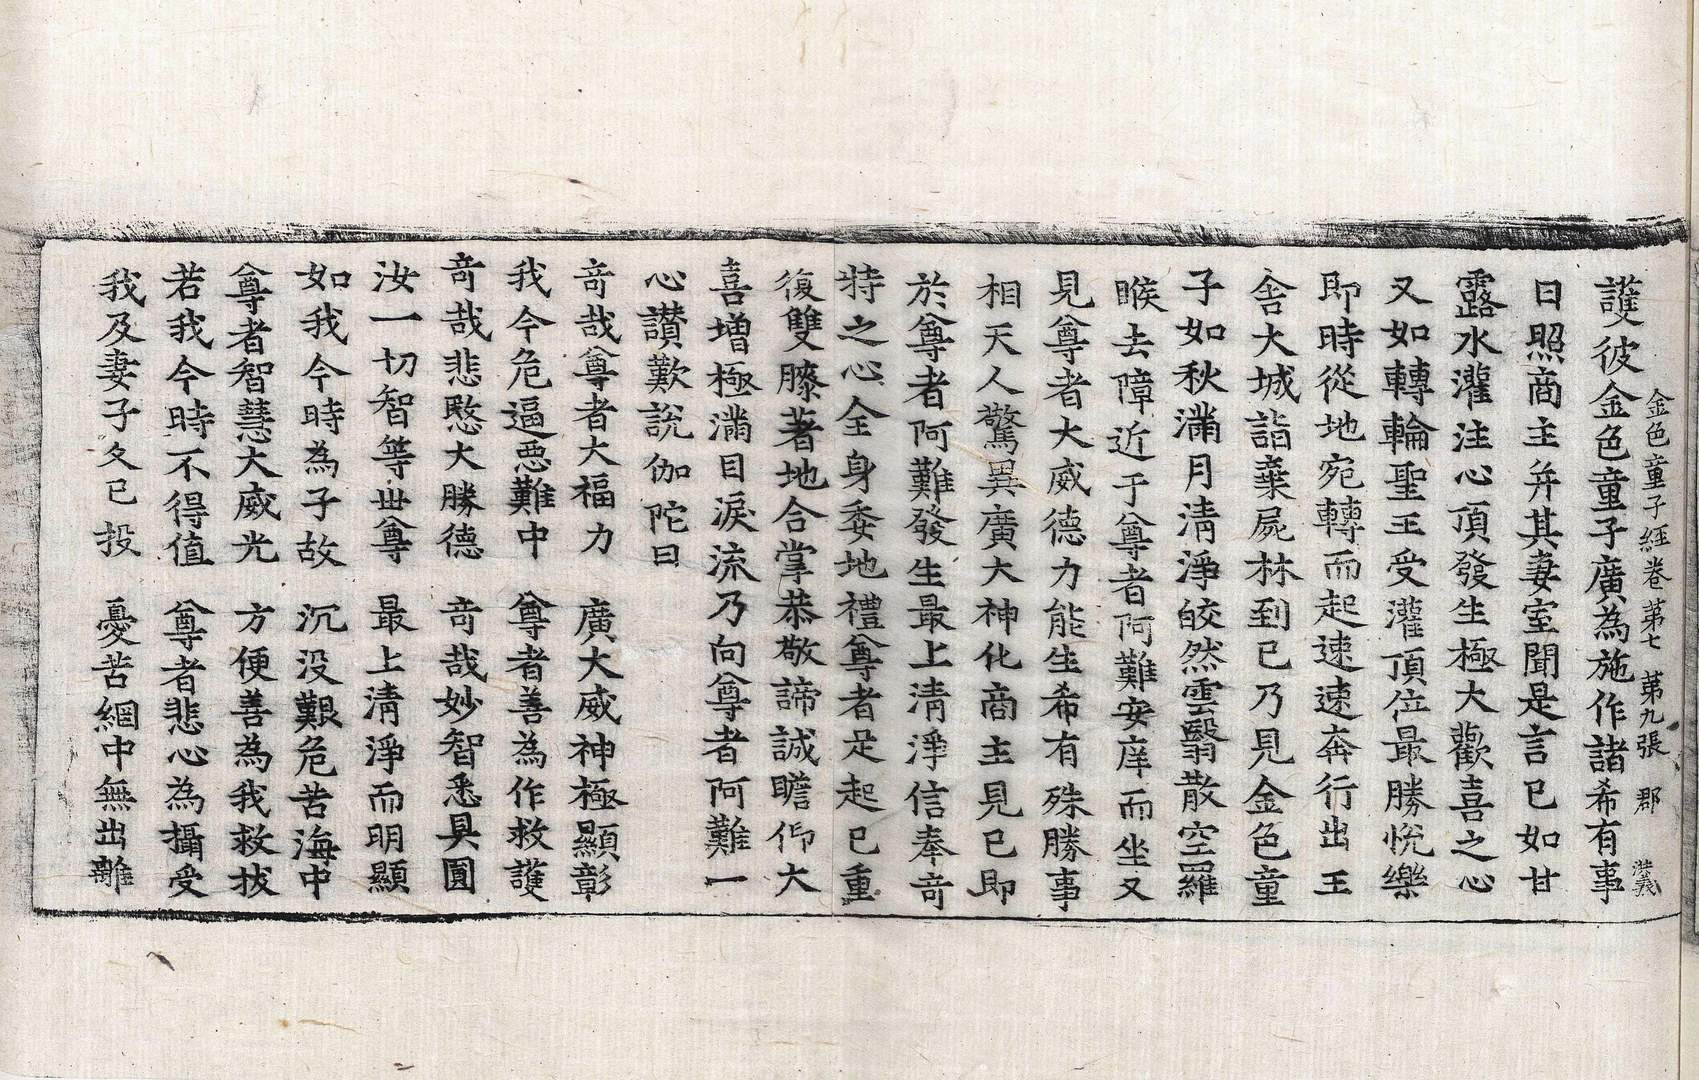 金色童子經卷第七 第九張 郡
護彼金色童子廣為施作諸希有事
日照商主并其妻室聞是言已如甘
露水灌注心頂發生極大歡喜之心
又如轉輪聖王受灌頂位最勝悅樂
即時從地宛轉而起速速奔行出王
舍大城詣棄屍林到已乃見金色童
子如秋滿月清淨皎然雲翳散空羅
睺去障近于尊者阿難安庠而坐又
見尊者大威德力能生希有殊勝事
相天人驚異廣大神化商主見已即
於尊者阿難發生最上清淨信奉奇
特之心全身委地禮尊者足起已重
復雙膝著地合掌恭敬諦誠瞻仰大
喜增極滿目淚流乃向尊者阿難一
心讚歎說伽陀曰
奇哉尊者大福力 廣大威神極顯彰
我今危逼惡難中 尊者善為作救護
奇哉悲愍大勝德 奇哉妙智悉具圓
汝一切智等世尊 最上清淨而明顯
如我今時為子故 沉沒艱危苦海中
尊者智慧大威光 方便善為我救拔
若我今時不得值 尊者悲心為攝受
我及妻子久已投 憂苦網中無出離